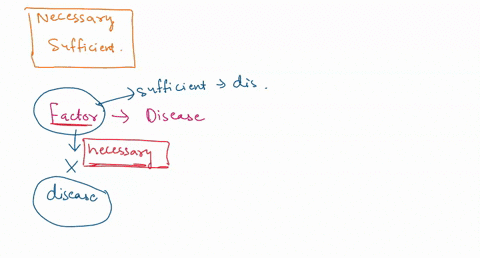 Necessary
Sufficient.
sufficient → dis.
Factor → Disease
necessary
X
disease